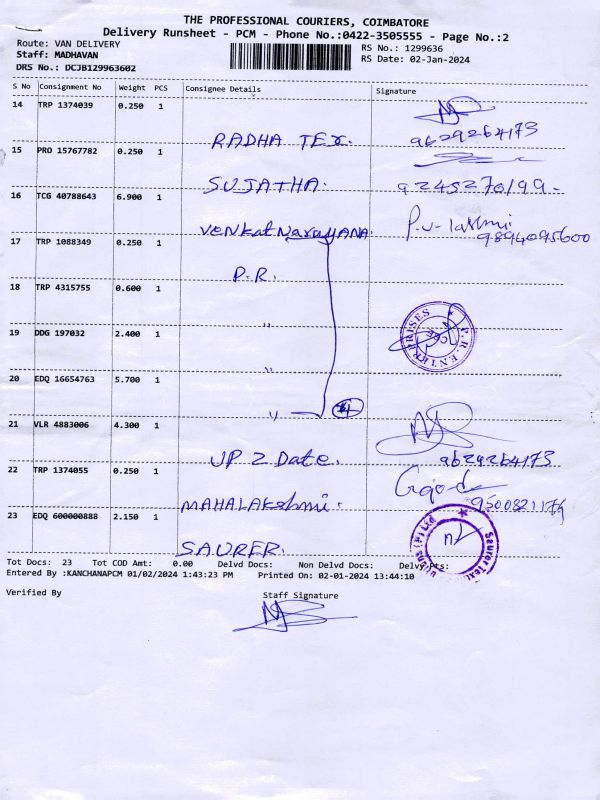 THE PROFESSIONAL COURIERS, COIMBATORE
Delivery Runsheet - PCM - Phone No.:0422-3505555 - Page No.:2
Route: VAN DELIVERY
RS No.: 1299636
Staff: MADHAVAN
RS Date: 02-Jan-2024
DRS No.: DCJB129963602
S No Consignment No Weight PCS Consignee Details Signature
14 TRP 1374039 0.250 1
RADHA TEX. 9629264173
15 PRO 15767782 0.250 1
SUJATHA. 9245270199-
16 TCG 40788643 6.900 1
VENKat NaraYANA. P.V- laxmi
9894095600
17 TRP 1088349 0.250 1
P.R.
18 TRP 4315755 0.600 1
P.R. ENTERPRISES
CBE
19 DDG 197032 2.400 1
"
20 EDQ 16654763 5.700 1
"
" 4
21 VLR 4883006 4.300 1
UP 2 Date. 9629264173
22 TRP 1074055 0.250 1
MAHALAKshmi.
23 EDQ 600000888 2.150 1
SAURER.
Saurer
Tot Docs: 23 Tot COD Amt: 0.00 Delvd Docs: Non Delvd Docs: Delvy Pts:
Entered By :KANCHANAPCM 01/02/2024 1:43:23 PM Printed On: 02-01-2024 13:44:10
Verified By Staff Signature